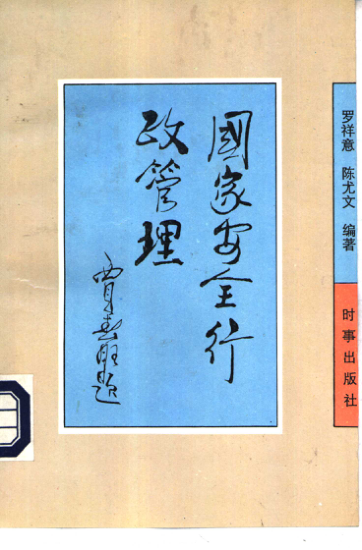 國家安全行
政管理
贾春旺题
罗祥意 陈尤文 编著
时事出版社